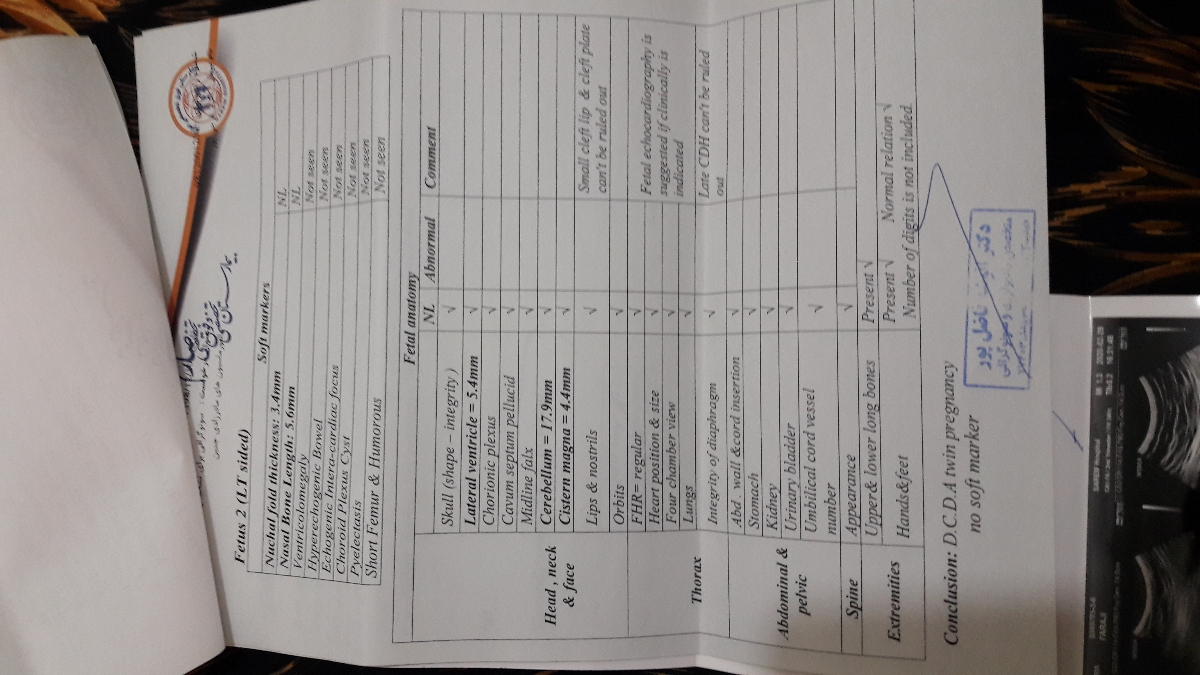 Fetus 2 (LT sided)
Soft markers
Nuchal fold thickness: 3.4mm NL
Nasal Bone Length: 5.6mm NL
Ventricolomegaly Not seen
Hyperechogenic Bowel Not seen
Echogenic Intera-cardiac focus Not seen
Choroid Plexus Cyst Not seen
Pyelectasis Not seen
Short Femur & Humorous Not seen
Fetal anatomy
NL Abnormal Comment
Head , neck & face
Skull (shape – integrity) √
Lateral ventricle = 5.4mm √
Chorionic plexus √
Cavum septum pellucid √
Midline falx √
Cerebellum = 17.9mm √
Cistern magna = 4.4mm √
Lips & nostrils √ Small cleft lip & cleft plate can't be ruled out
Orbits √
Thorax
FHR= regular √
Heart position & size √ Fetal echocardiography is suggested if clinically is indicated
Four chamber view √
Lungs √
Integrity of diaphragm √ Late CDH can't be ruled out
Abdominal & pelvic
Abd . wall &cord insertion √
Stomach √
Kidney √
Urinary bladder √
Umbilical cord vessel number √
Spine Appearance √
Extremities
Upper& lower long bones Present √
Hands&feet Present √ Normal relation √
Number of digits is not included.
Conclusion: D.C.D.A twin pregnancy
no soft marker
دکتر
فاضل پور